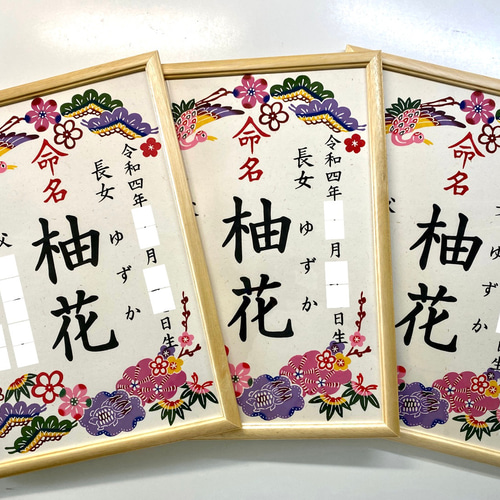 命名
令和四年 月 日生
長女 ゆずか
柚花
父
命名
令和四年 月 日生
長女 ゆずか
柚花
命名
ゆずか
柚花